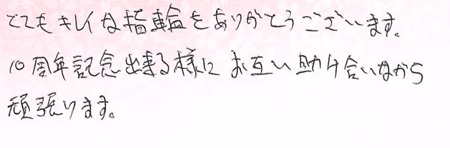 とてもキレイな指輪をありがとうございます。
10周年記念出来る様にお互い助け合いながら
頑張ります。